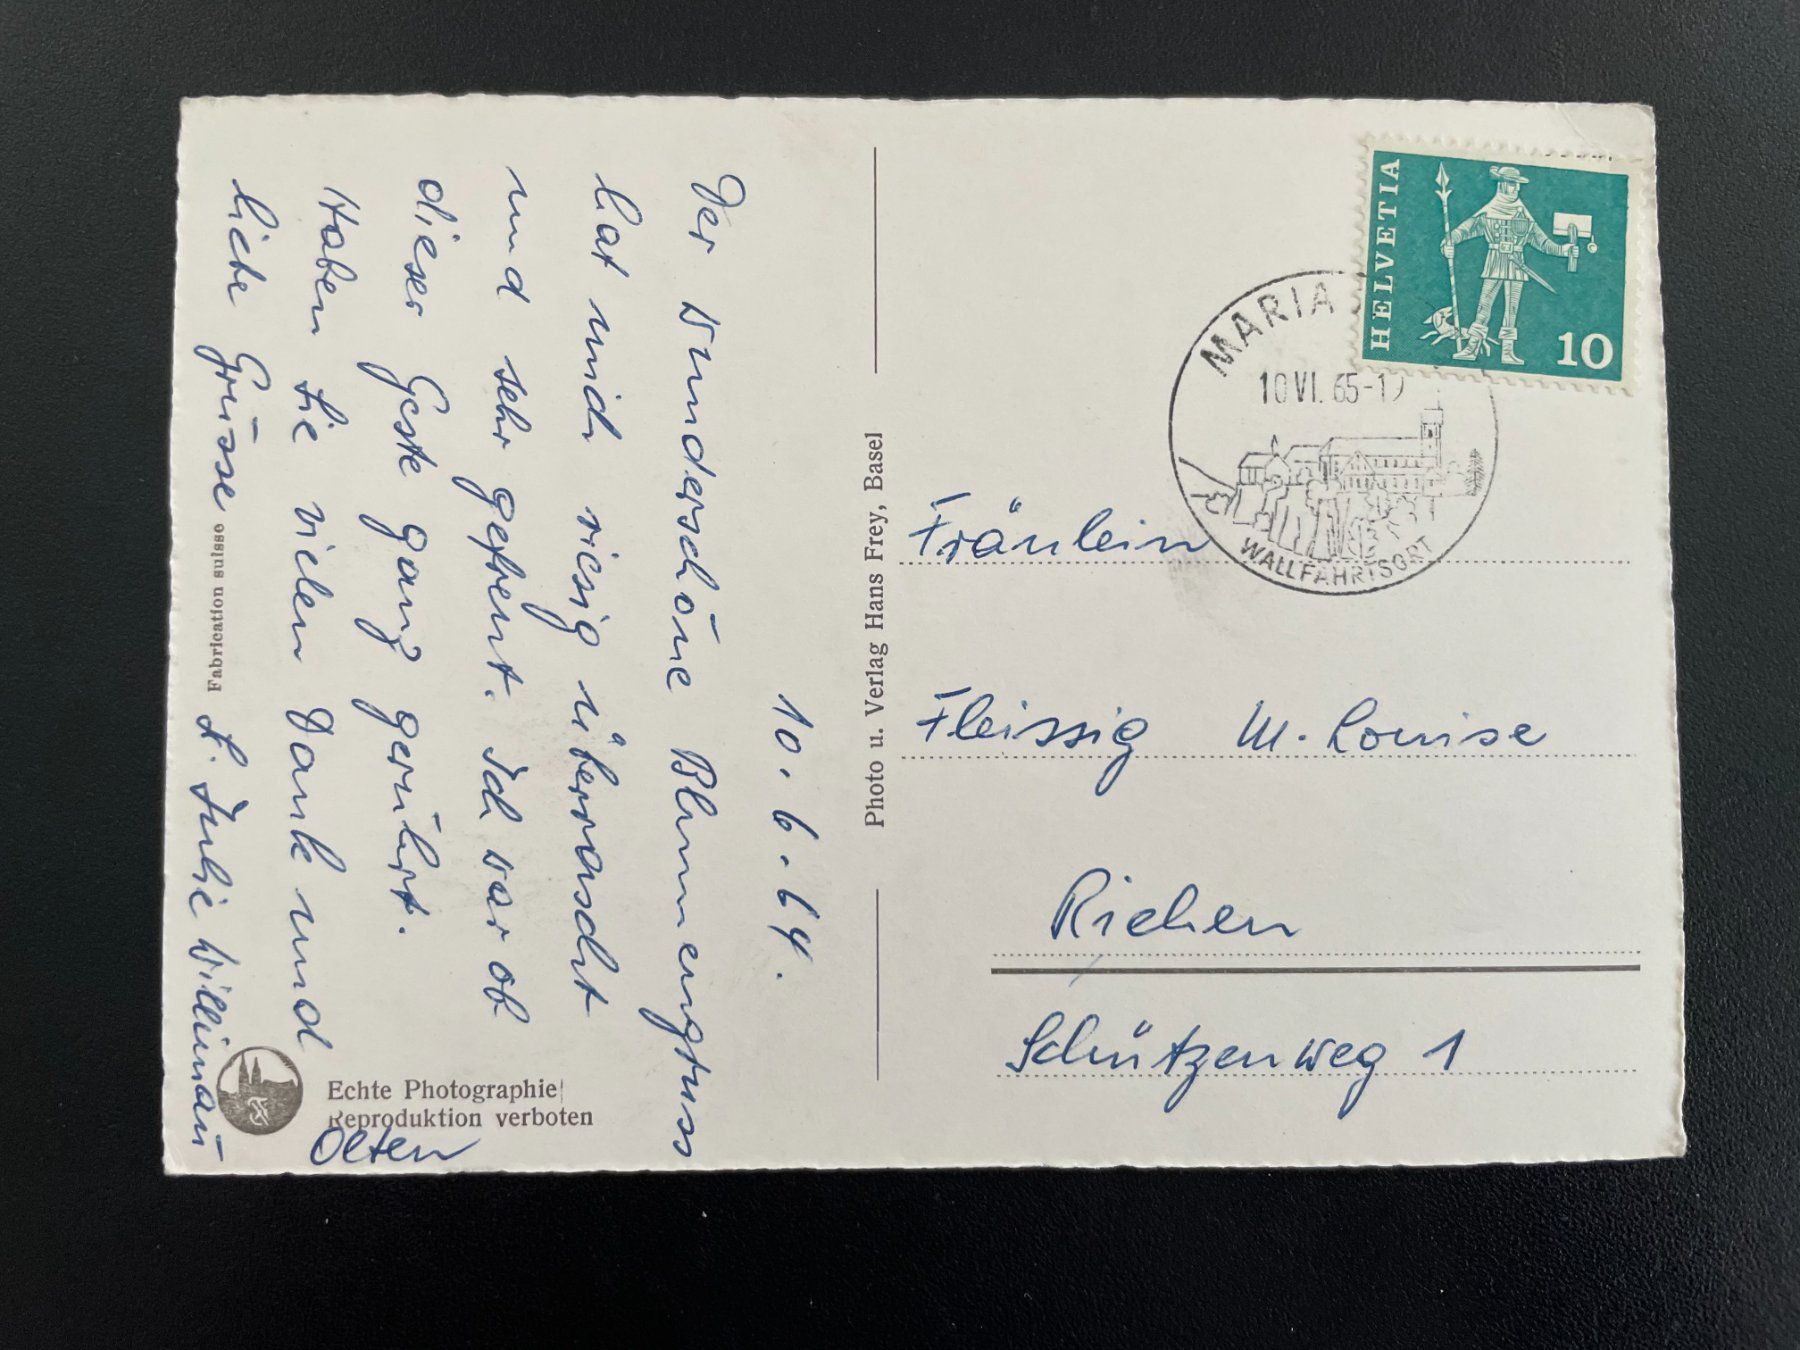 10. 6. 64.
Der wunderschöne Blumengruss
hat mich riesig überrascht
und sehr gefreut. Ich war ob
dieser Geste ganz gerührt.
Haben Sie vielen Dank und
liebe Grüsse
Olten
Fabrication suisse
Echte Photographie
Reproduktion verboten
Photo u. Verlag Hans Frey, Basel
HELVETIA
10
MARIA
10 VI. 65-1
WALLFAHRTSORT
Fräulein
Fleissig M. Louise
Riehen
Schützenweg 1